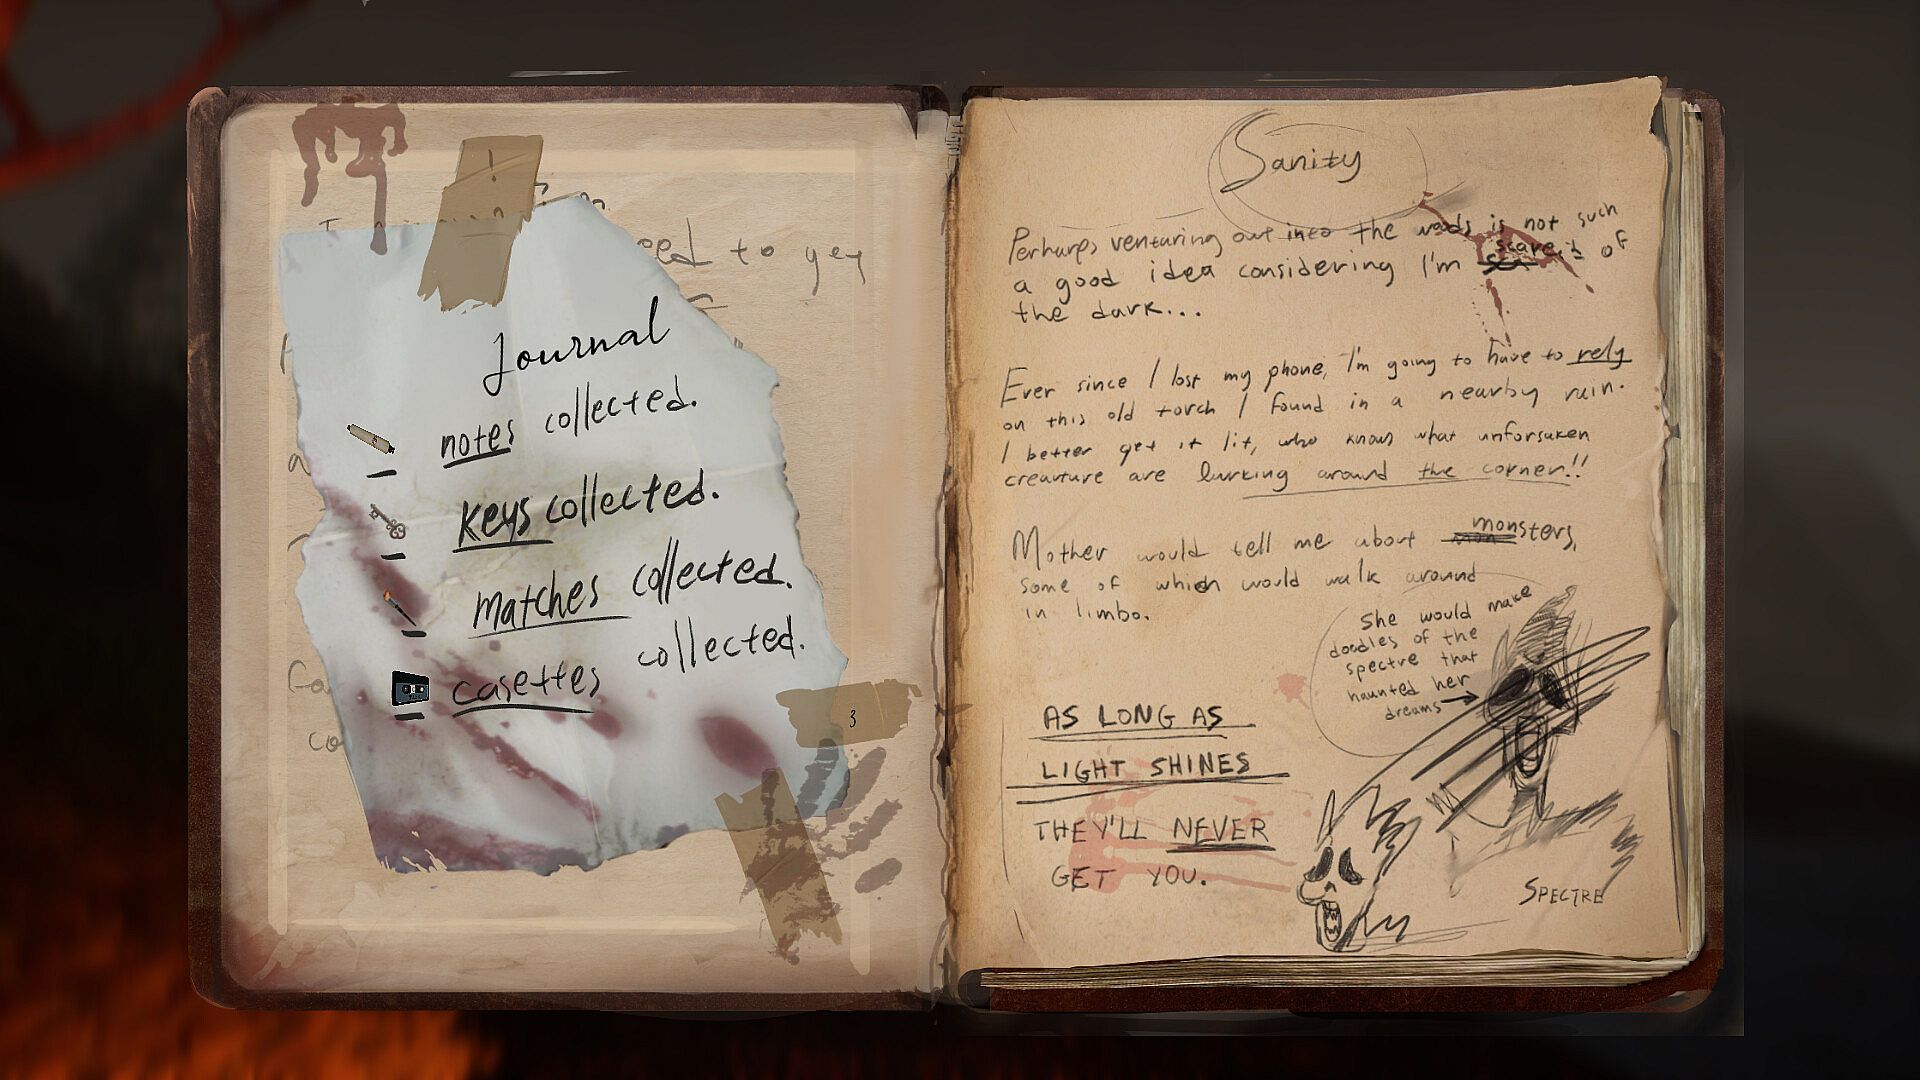 eed to yey
Journal
notes collected.
keys collected.
matches collected.
casettes collected.
co
3
Sanity
Perhaps venturing out into the woods is not such
a good idea considering I'm scared of
the dark...
Ever since I lost my phone, I'm going to have to rely
on this old torch I found in a nearby ruin.
I better get it lit, who knows what unforsaken
creature are lurking around the corner!!
Mother would tell me about monsters,
some of which would walk around
in limbo.
She would make
doodles of the
spectre that
haunted her
dreams
AS LONG AS
LIGHT SHINES
THEY'LL NEVER
GET YOU.
SPECTRE